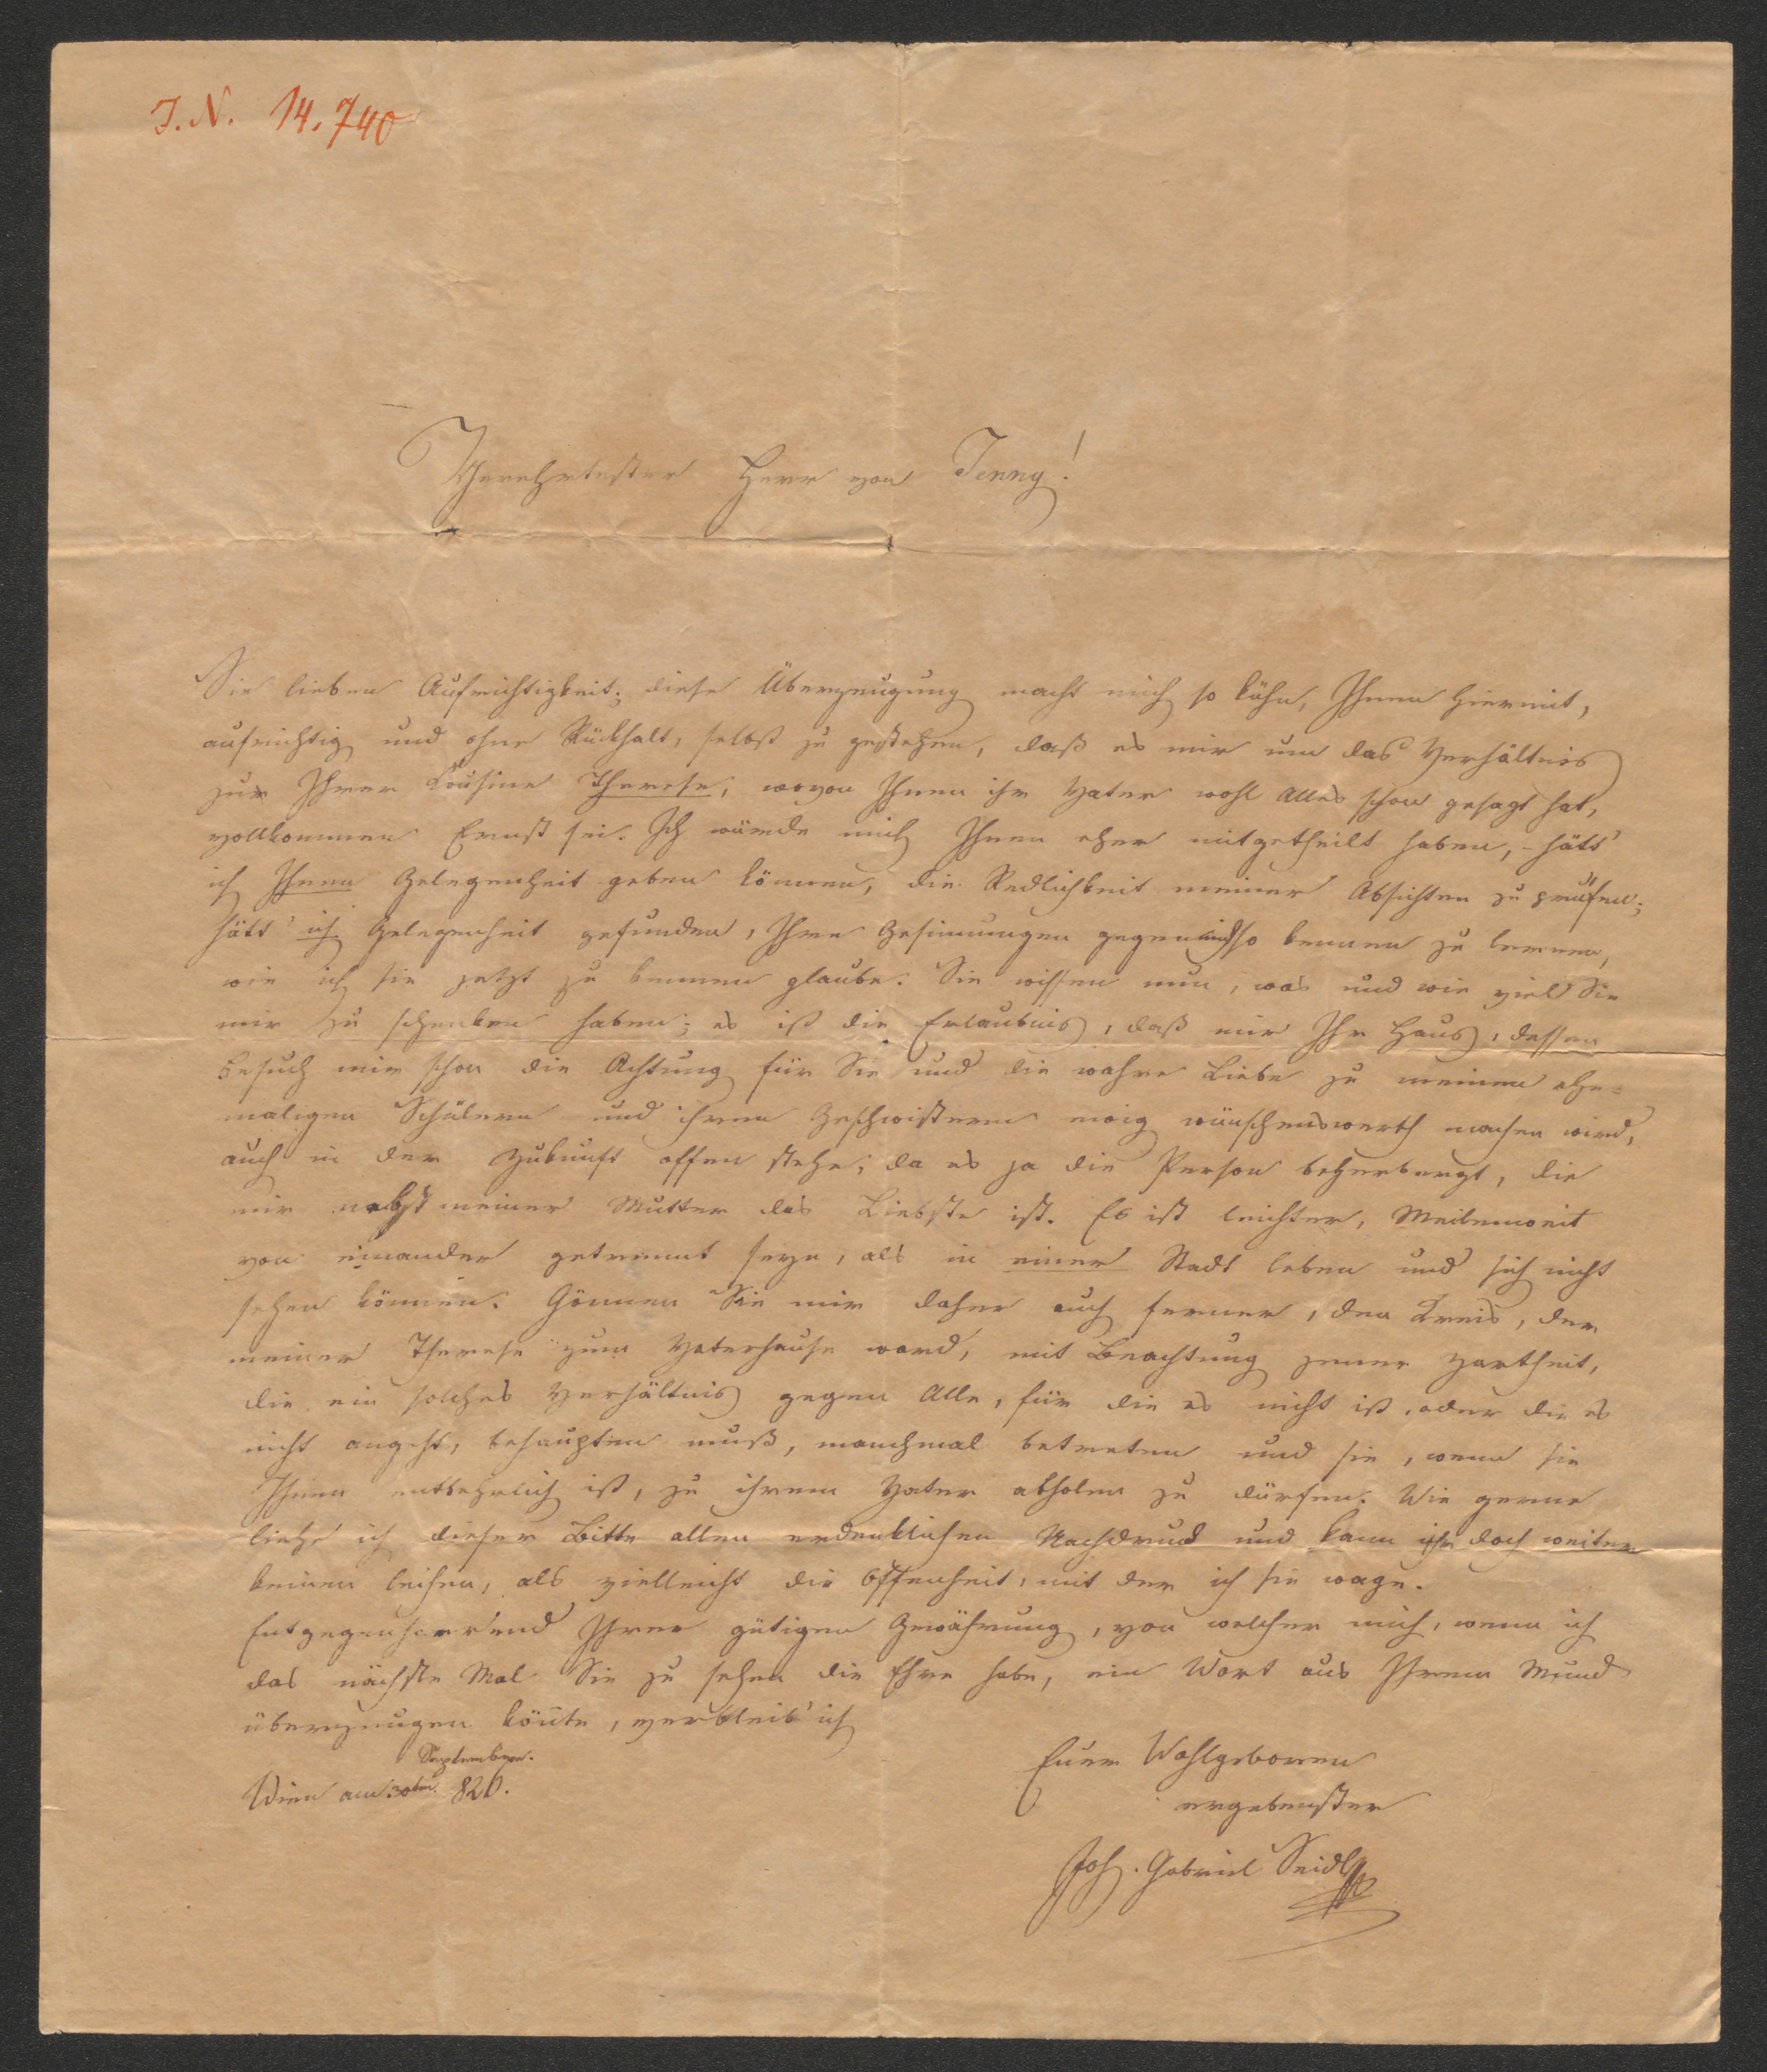 J. N. 14.740
Verehrtester Herr von Jenny!
Sie lieben Aufrichtigkeit; diese Überzeugung macht mich so kühn, Ihnen hiermit,
aufrichtig und ohne Rückhalt, selbst zu gestehen, daß es mir um das Verhältnis
zur Ihrer Cousine Therese, wovon Ihnen ihr Vater wohl Alles schon gesagt hat,
vollkommen Ernst sei. Ich würde mich Ihnen eher mitgetheilt haben, – hätt'
ich Ihnen Gelegenheit geben können, die Redlichkeit meiner Absichten zu prüfen;
hätt' ich Gelegenheit gefunden, Ihre Gesinnungen gegen mich so kennen zu lernen,
wie ich sie jetzt zu kennen glaube. Sie wissen nun, was und wie viel Sie
mir zu schenken haben; es ist die Erlaubnis, daß mir Ihr Haus, dessen
Besuch mir schon die Achtung für Sie und die wahre Liebe zu meinen ehe=
maligen Schülern und ihren Geschwistern ewig wünschenswerth machen wird,
auch in der Zukunft offen stehe; da es ja die Person beherbergt, die
mir nebst meiner Mutter das Liebste ist. Es ist leichter, Meilenweit
von einander getrennt seyn, als in einer Stadt leben und sich nicht
sehen können. Gönnen Sie mir daher auch ferner, den Kreis, der
meiner Therese zum Vaterhause ward, mit Beachtung jener Zartheit,
die ein solches Verhältnis gegen Alle, für die es nicht ist, oder die es
nicht angeht, behaupten muß, manchmal betreten und sie, wenn sie
Ihnen entbehrlich ist, zu ihrem Vater abholen zu dürfen. Wie gerne
liehe ich dieser Bitte allen erdenklichen Nachdruck und kann ihr doch weiter
keinen leihen, als vielleicht die Offenheit, mit der ich sie wage.
Entgegenharrend Ihrer gütigen Gewährung, von welcher mich, wenn ich
das nächste Mal Sie zu sehen die Ehre habe, ein Wort aus Ihrem Mund
überzeugen könnte, verbleib' ich
September.
Wien am 30ten 826.
Euer Wohlgeboren
ergebenster
Joh. Gabriel Seidl